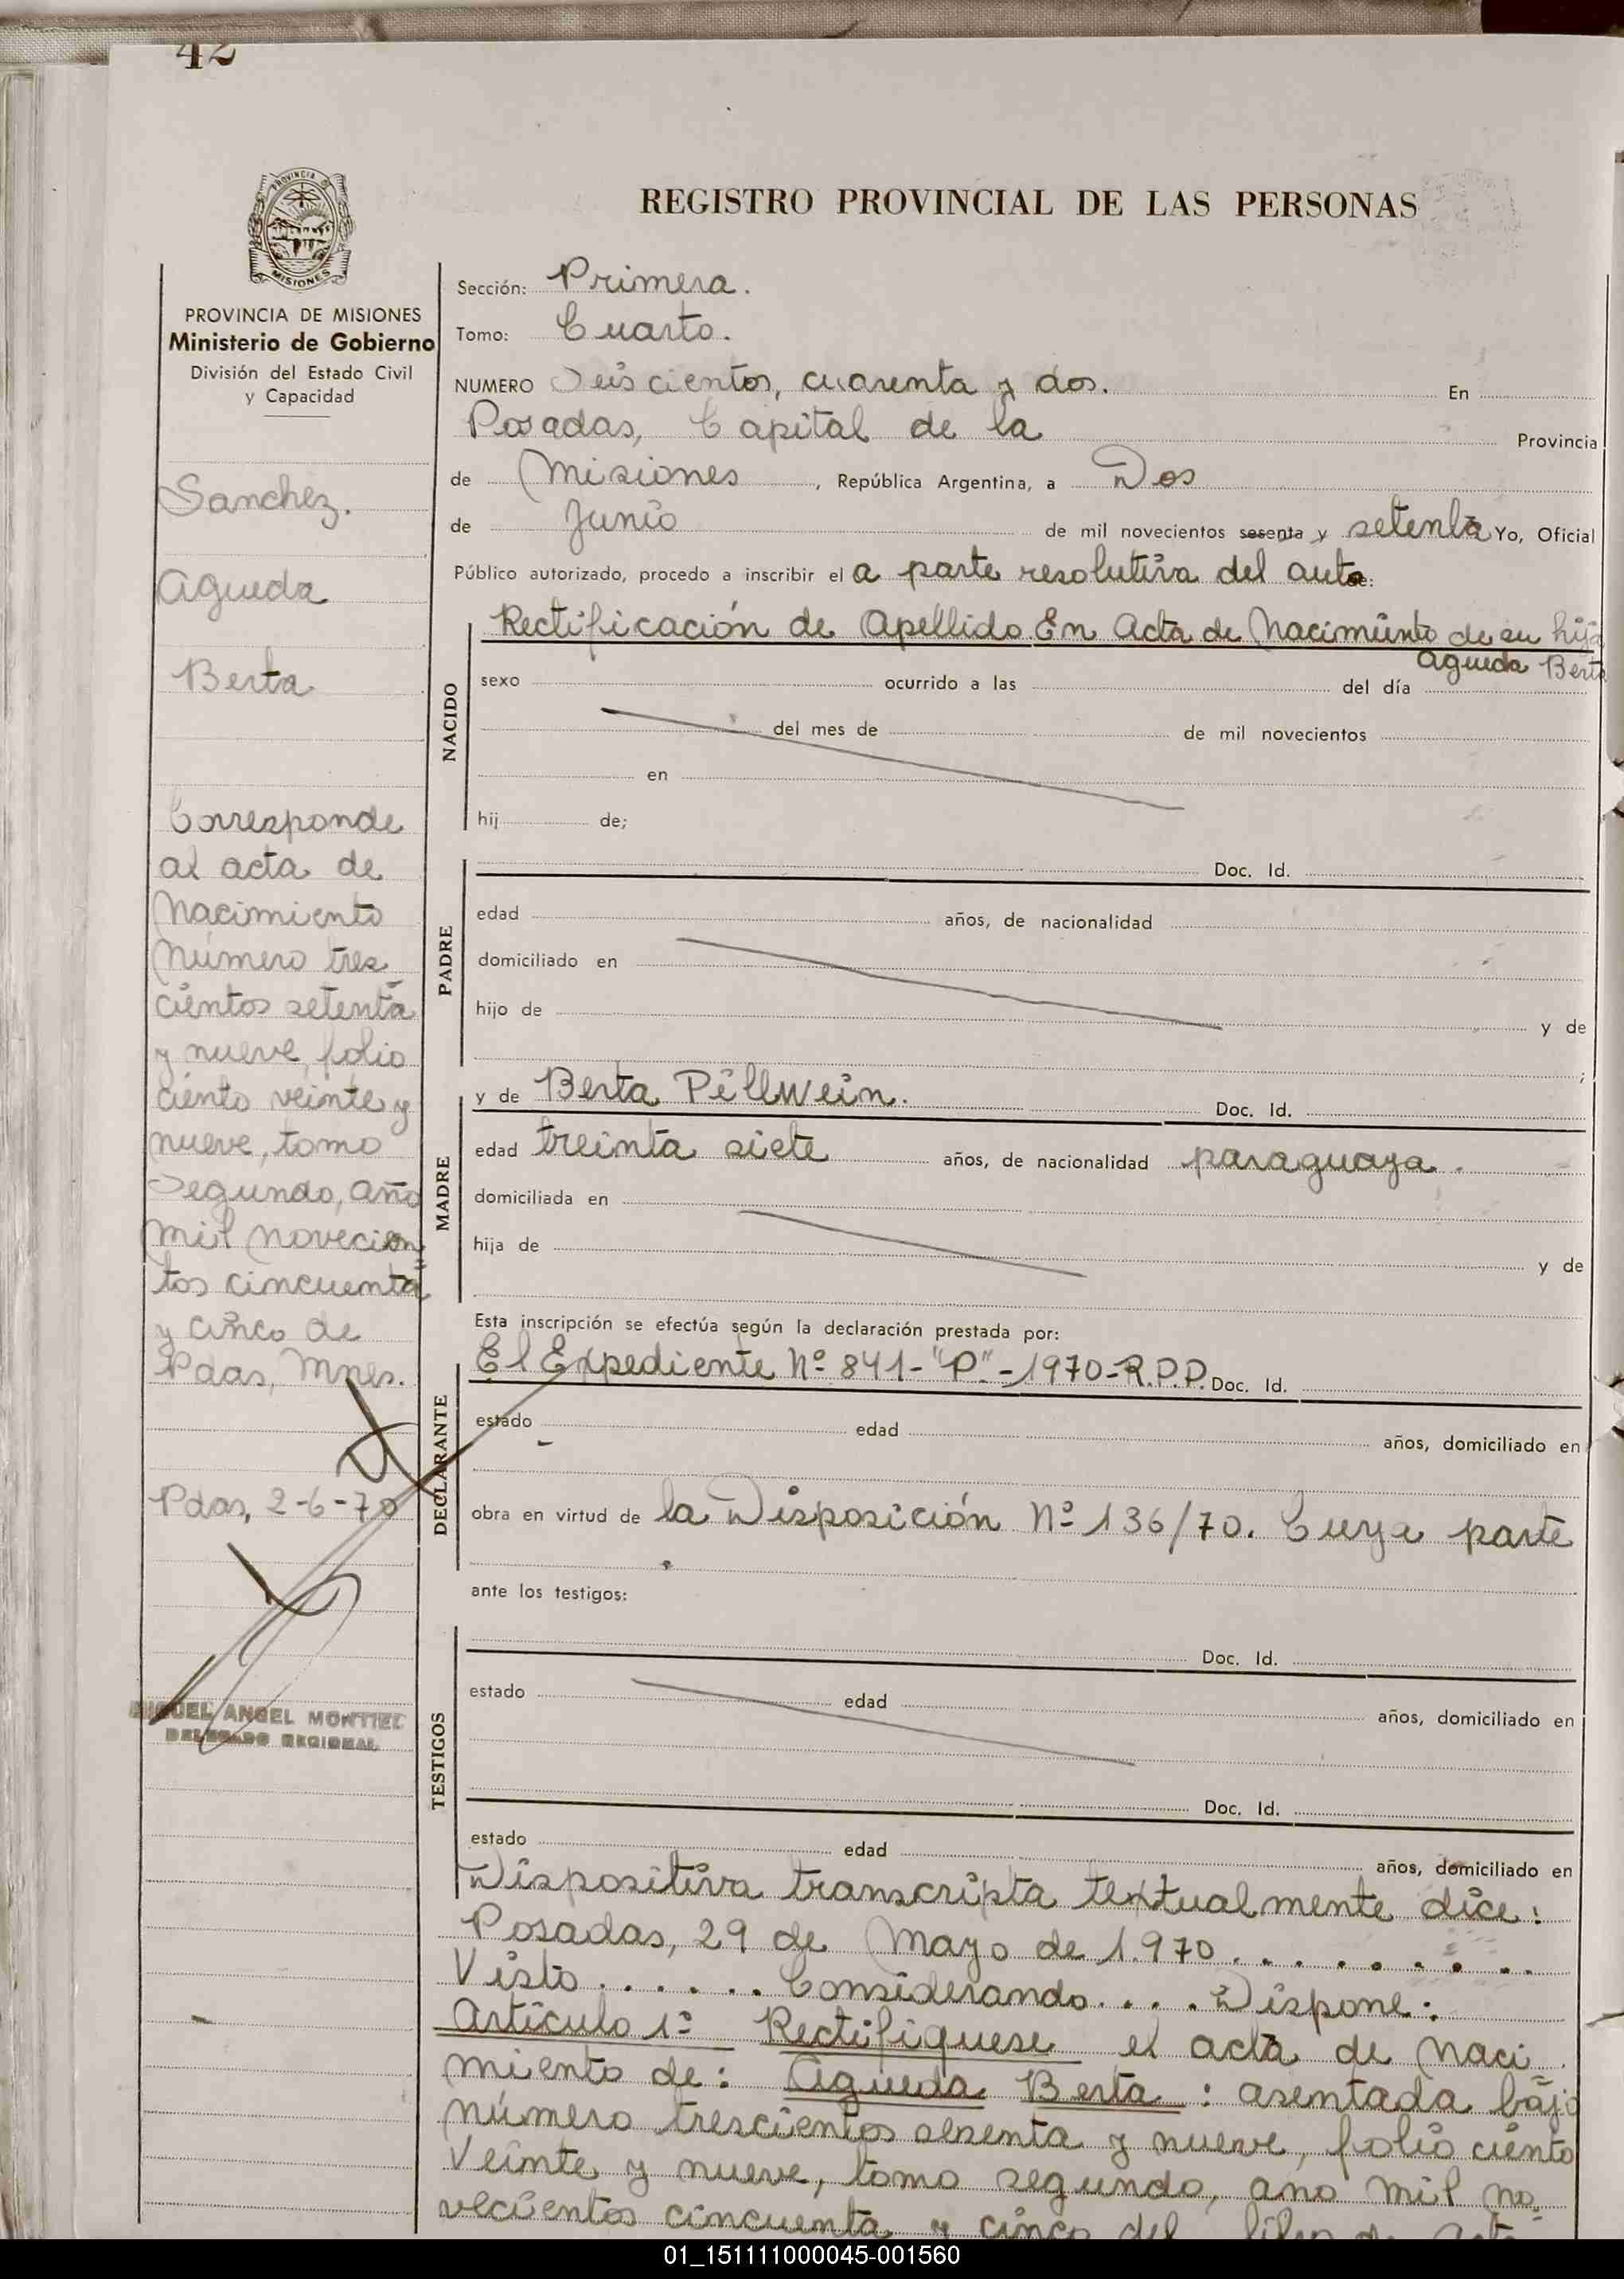 42
PROVINCIA DE
MISIONES
REGISTRO PROVINCIAL DE LAS PERSONAS
PROVINCIA DE MISIONES
Ministerio de Gobierno
División del Estado Civil
y Capacidad
Sanchez.
Agueda
Berta
Corresponde
al acta de
Nacimiento
Número tres
cientos setenta
y nueve, folio
ciento veinte y
nueve, tomo
Segundo, año
mil novecien
tos cincuenta
y cinco de
Pdas, Mnes.
Pdas, 2-6-70
MIGUEL ANGEL MONTIEL
DELEGADO REGIONAL
Sección: Primera.
Tomo: Cuarto.
NUMERO Seiscientos, cuarenta y dos. En
Posadas, Capital de la Provincia
de Misiones, República Argentina, a Dos
de Junio de mil novecientos sesenta y setenta Yo, Oficial
Público autorizado, procedo a inscribir el a parte resolutiva del auto de:
Rectificación de Apellido En Acta de Nacimiento de su hija
Agueda Berta
NACIDO
sexo ocurrido a las del día
del mes de de mil novecientos
en
hij de;
Doc. Id.
PADRE
edad años, de nacionalidad
domiciliado en
hijo de y de
;
MADRE
y de Berta Pellwein. Doc. Id.
edad treinta siete años, de nacionalidad paraguaya.
domiciliada en
hija de y de
Esta inscripción se efectúa según la declaración prestada por:
DECLARANTE
El Expediente Nº 841-"P"-1970-R.P.P. Doc. Id.
estado edad años, domiciliado en
obra en virtud de la Disposición Nº 136/70. Cuya parte
ante los testigos:
TESTIGOS
Doc. Id.
estado edad años, domiciliado en
Doc. Id.
estado edad años, domiciliado en
Dispositiva transcripta textualmente dice:
Posadas, 29 de Mayo de 1.970. . . . . . . . .
Visto . . . . . . Considerando. . . . Dispone:
Artículo 1º Rectifíquese el acta de Naci
miento de: Agueda Berta: asentada bajo
número trescientos setenta y nueve, folio ciento
veinte y nueve, tomo segundo, año mil no
vecientos cincuenta y cinco del libro de
01_151111000045-001560